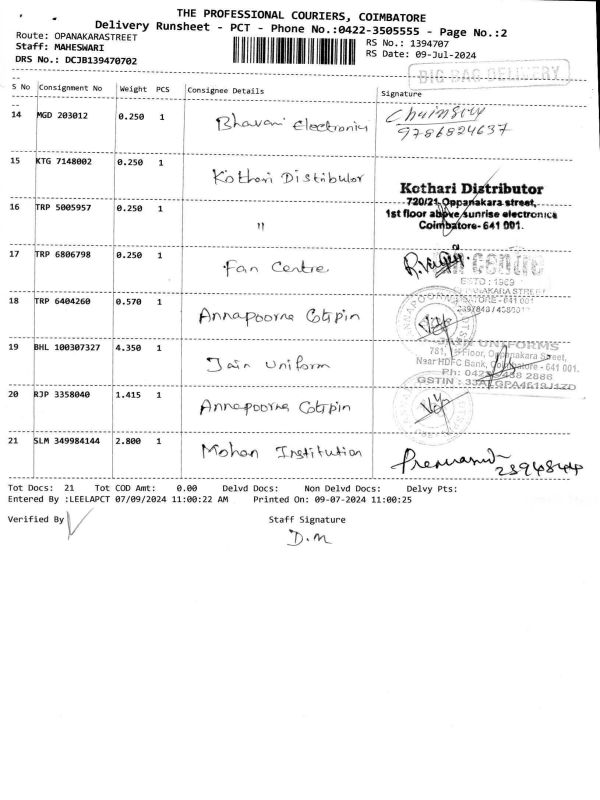 THE PROFESSIONAL COURIERS, COIMBATORE
Delivery Runsheet - PCT - Phone No.:0422-3505555 - Page No.:2
Route: OPANAKARASTREET
RS No.: 1394707
Staff: MAHESWARI
RS Date: 09-Jul-2024
DRS No.: DCJB139470702
BIG BAG DELIVERY
S No Consignment No Weight PCS Consignee Details Signature
14 MGD 203012 0.250 1 Bhavani Electronics
9786824637
15 KTG 7148002 0.250 1 Kothari Distributor
Kothari Distributor
720/21, Oppanakara street,
1st floor above sunrise electronics
Coimbatore- 641 001.
16 TRP 5005957 0.250 1 "
17 TRP 6806798 0.250 1 Fan Centre
ESTD : 1969
18 TRP 6404260 0.570 1 Annapoorna Cotspin
19 BHL 100307327 4.350 1 Jain Uniform
UNIFORMS
781, 1st Floor, Oppanakara Street,
Near HDFC Bank, Coimbatore - 641 001.
20 RJP 3358040 1.415 1 Annapoorna Cotspin
21 SLM 349984144 2.800 1 Mohan Institution
Tot Docs: 21 Tot COD Amt: 0.00 Delvd Docs: Non Delvd Docs: Delvy Pts:
Entered By :LEELAPCT 07/09/2024 11:00:22 AM Printed On: 09-07-2024 11:00:25
Verified By
Staff Signature
D.M